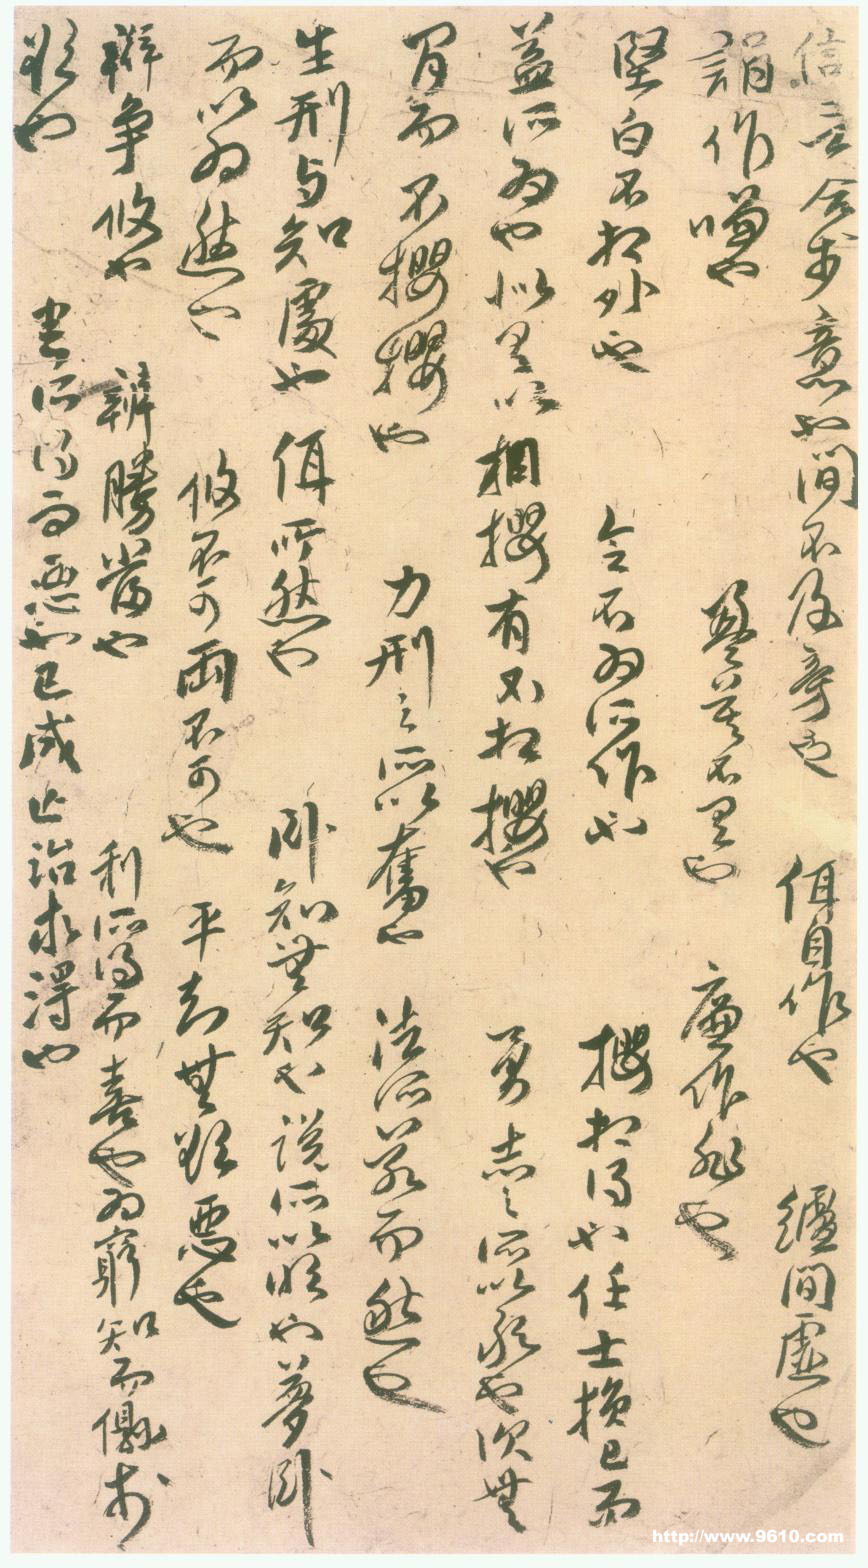 信言合於意也間不及旁也佴自作也纑間虛也
䛼作嗛也盈莫不有也廉作非也
堅白不相外也令不為所作也攖相得也任士損已而
益所為也似有以相攖有不相攖也勇志之所以敢也次無
間而不攖攖也力刑之所以奮也法所若而然也
生刑与知處也佴所然也臥知無知也說所以明也夢臥
而以為然也攸不可兩不可也平知無欲惡也
辯爭攸也辯勝當也利所得而喜也為窮知而儇於
欲也害所得而惡也已成亡治求得也
http://www.9610.com